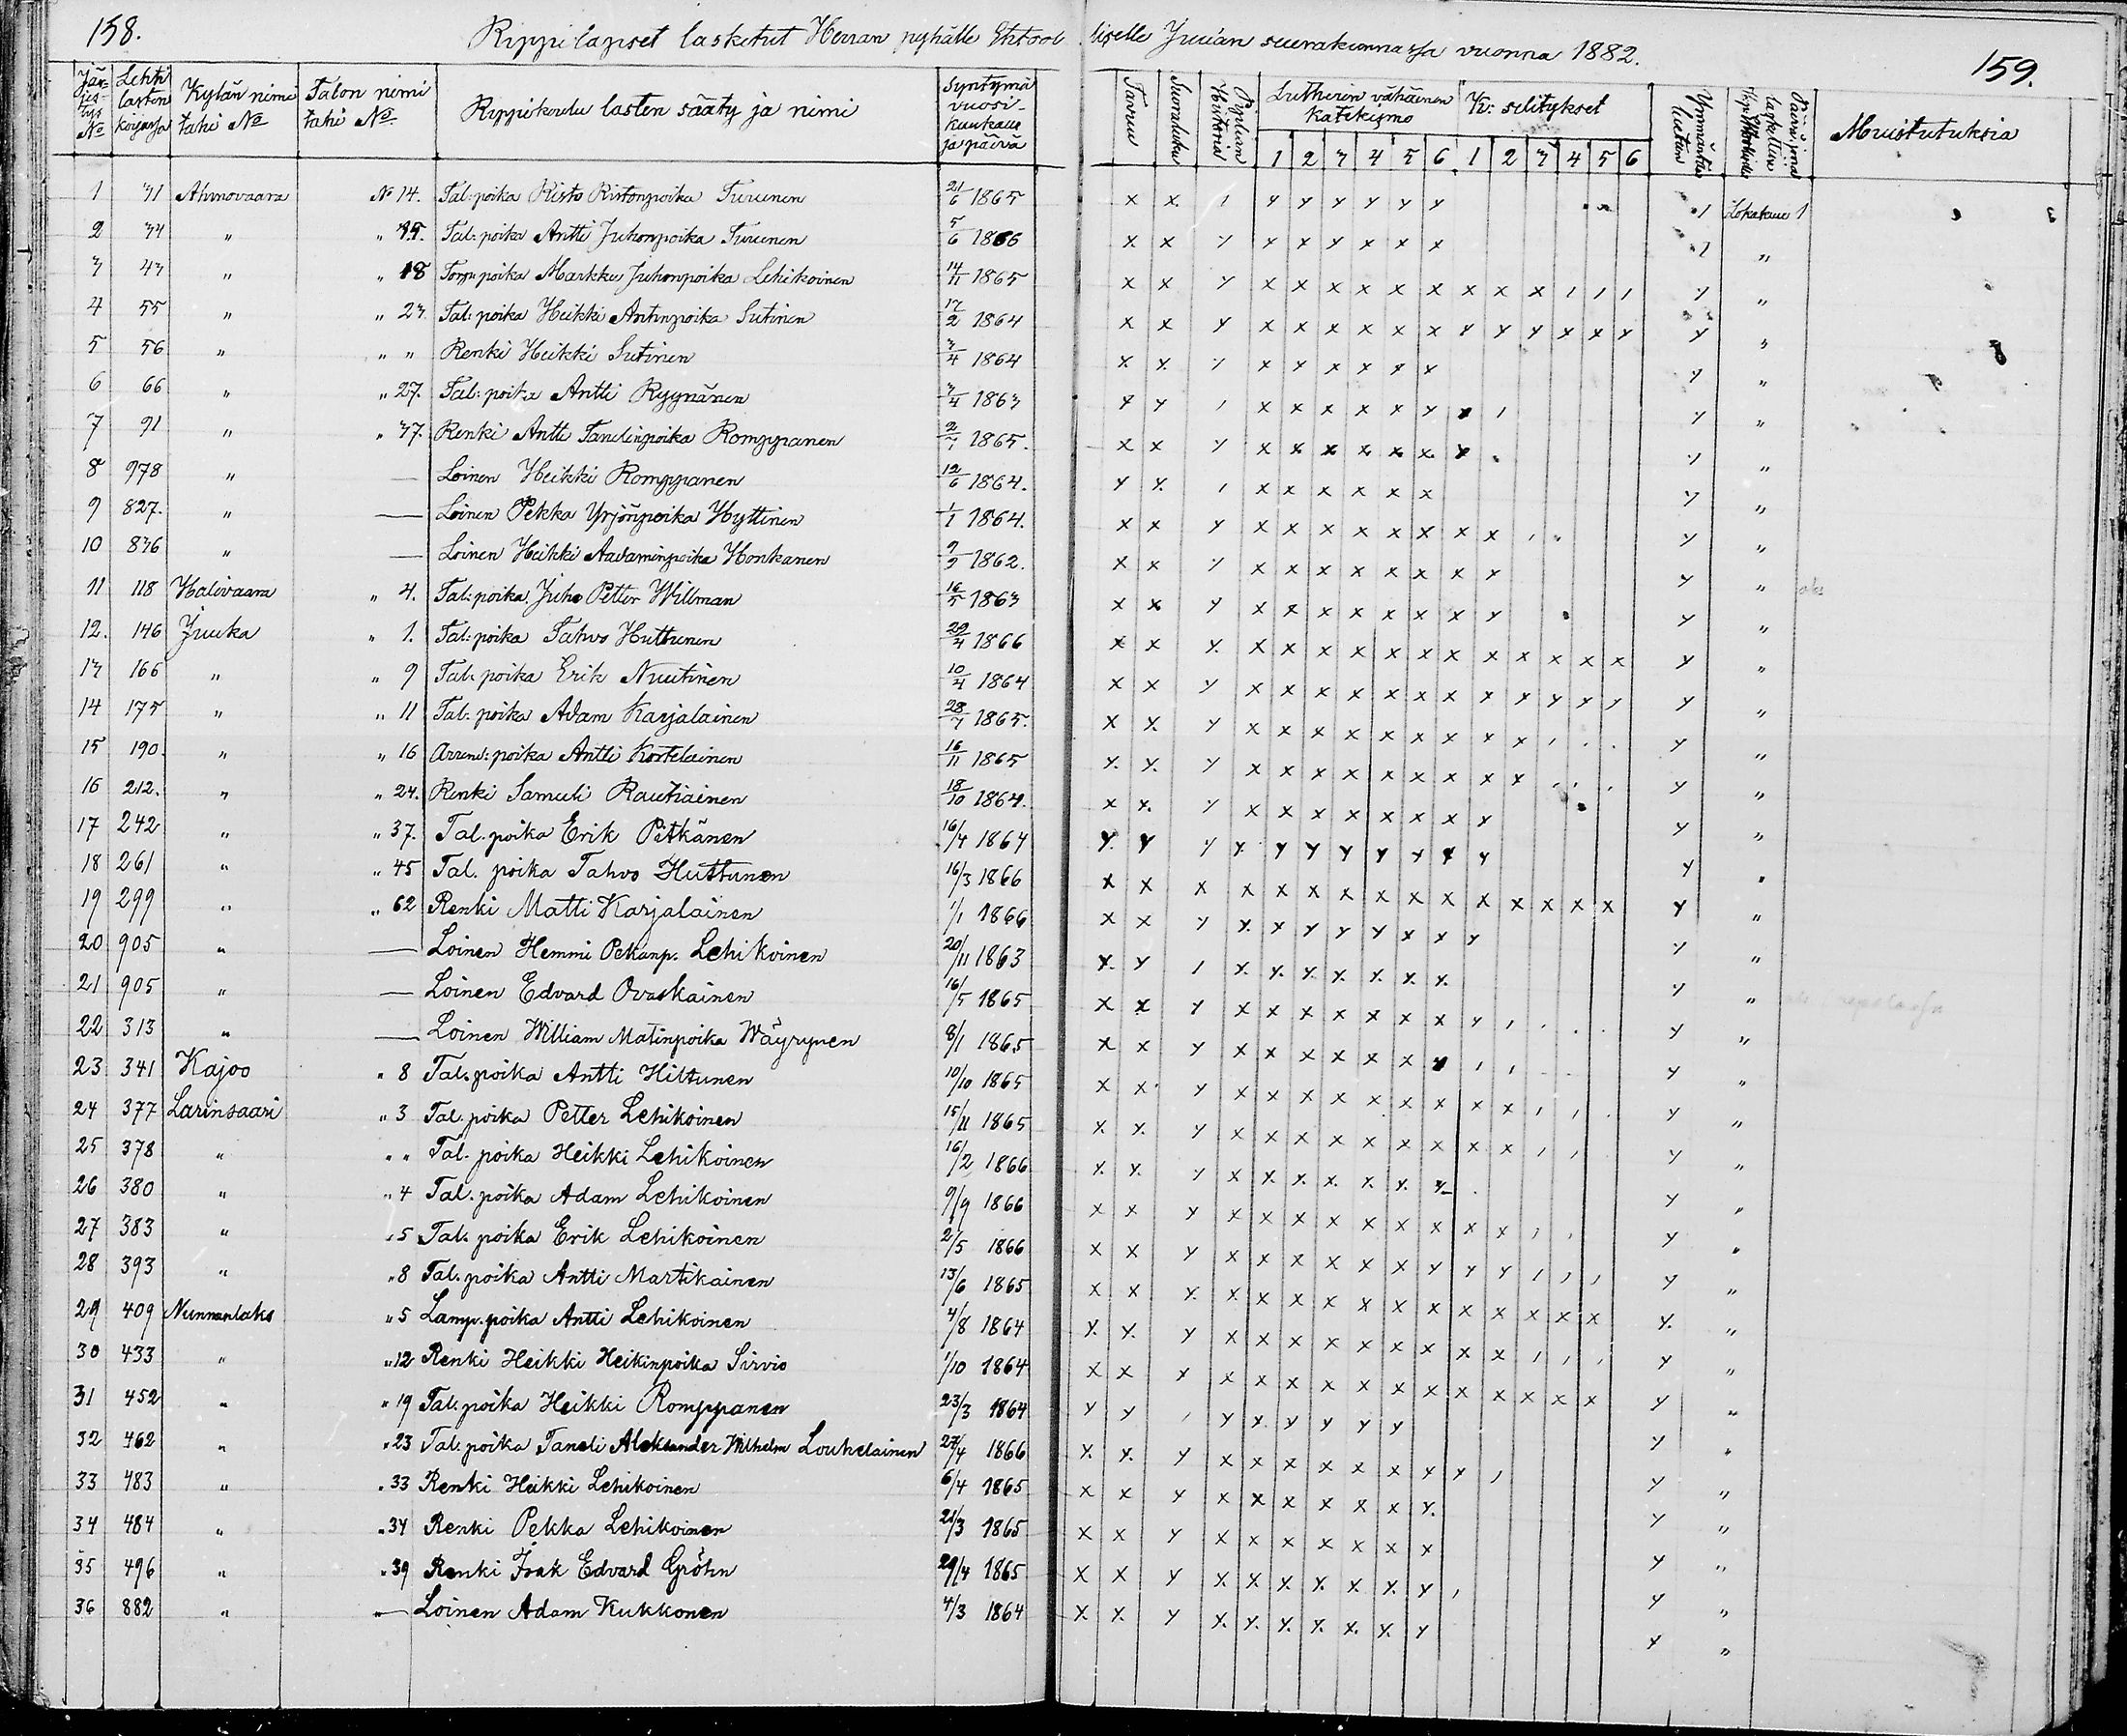 158.
Rippilapset lasketut Herran pyhälle Ehtool liselle Juuan seurakunnassa vuonna 1882.
159.
Jär-jes-tys № Lehti lasten kirjassa Kylän nimi tahi № Talon nimi tahi № Rippikoulu lasten sääty ja nimi Syntymä vuosi- kuukausi ja päivä Tavuu Suoraluku Pyplian Historia Lutherin vähäinen Katekismo Kr: selitykset Ymmärtä Muistutuksia
1 2 3 4 5 6 1 2 3 4 5 6
1 31 Ahmovaara № 14. Tal: poika Risto Ristonpoika Turunen 21/6 1865 Lokakuu 1
2 34 " " 15. Tal: poika Antti Juhonpoika Turunen 5/6 1866 "
3 43 " " 18 Torp: poika Markku Juhonpoika Lehikoinen 14/11 1865 "
4 55 " " 23. Tal: poika Heikki Antinpoika Sutinen 17/2 1864 "
5 56 " " " Renki Heikki Sutinen 3/4 1864 "
6 66 " " 27. Tal: poika Antti Ryynänen 3/4 1863 "
7 91 " " 37. Renki Antti Tanelinpoika Romppanen 1865. "
8 978 " — Loinen Heikki Romppanen 12/6 1864. "
9 827. " — Loinen Pekka Yrjönpoika Hyttinen 1/1 1864. "
10 836 " — Loinen Heikki Aadaminpoika Honkanen 1862. "
11 118 Halivaara " 4. Tal: poika Juho Petter Willman 16/5 1863 "
12. 146 Juuka " 1. Tal: poika Tahvo Huttunen 29/4 1866 "
13 166 " " 9 Tal: poika Erik Nuutinen 10/4 1864 "
14 175 " " 11 Tal: poika Adam Karjalainen 28/7 1865. "
15 190. " " 16 Arrend: poika Antti Kortelainen 16/11 1865 "
16 212. " " 24. Renki Samuli Rautiainen 18/10 1864. "
17 242 " " 37. Tal. poika Erik Pitkänen 16/4 1864 "
18 261 " " 45 Tal. poika Tahvo Huttunen 16/3 1866 "
19 299 " " 62 Renki Matti Karjalainen 1/1 1866 "
20 905 " — Loinen Hemmi Pekanp. Lehikoinen 20/11 1863 "
21 905 " — Loinen Edvard Ovaskainen 16/5 1865 "
22 313 " — Loinen William Matinpoika Wäyrynen 8/1 1865 "
23 341 Kajoo " 8 Tal. poika Antti Hiltunen 10/10 1865 "
24 377 Larinsaari " 3 Tal. poika Petter Lehikoinen 15/11 1865 "
25 378 " " " Tal. poika Heikki Lehikoinen 16/2 1866 "
26 380 " " 4 Tal. poika Adam Lehikoinen 9/9 1866 "
27 383 " " 5 Tal. poika Erik Lehikoinen 2/5 1866 "
28 393 " " 8 Tal. poika Antti Martikainen 13/6 1865 "
29 409 Nunnanlaks " 5 Lamp. poika Antti Lehikoinen 4/8 1864 "
30 433 " " 12 Renki Heikki Heikinpoika Sirvio 1/10 1864 "
31 452 " " 19 Tal. poika Heikki Romppanen 23/3 1864 "
32 462 " " 23 Tal. poika Taneli Aleksander Wilhelm Louhelainen 27/4 1866 "
33 483 " " 33 Renki Heikki Lehikoinen 6/4 1865 "
34 484 " " 34 Renki Pekka Lehikoinen 21/3 1865 "
35 496 " " 39 Renki Isak Edvard Gröhn 29/4 1865 "
36 882 " " — Loinen Adam Kukkonen 4/3 1864 "